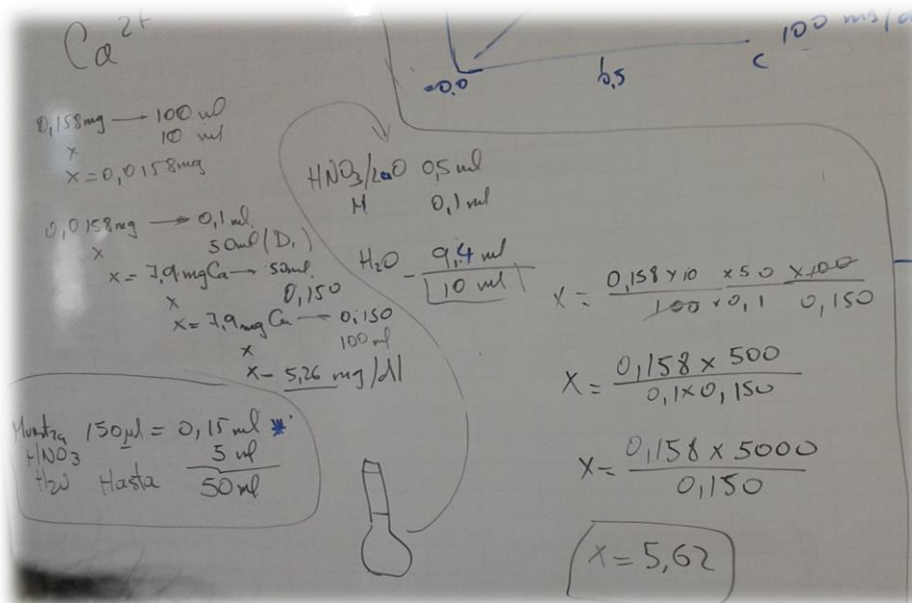 Ca²⁺
100 mg/d
0,0
0,5
C
0,158mg → 100 ml
10 ml
x
x = 0,0158mg
0,0158mg → 0,1 ml
50ml (D₁)
x
x = 7,9 mg Ca → 50ml
x
0,150
x = 7,9 mg Ca → 0,150
x
100 ml
x = 5,26 mg/dl
Muestra 150 µl = 0,15 ml *
HNO3 5 ml
H2O Hasta 50 ml
HNO3/LaO 0,5 ml
M 0,1 ml
H2O - 9,4 ml
10 ml
X = 0,158 x 10 x 50 x 100
100 x 0,1 0,150
X = 0,158 x 500
0,1 x 0,150
X = 0,158 x 5000
0,150
X = 5,62